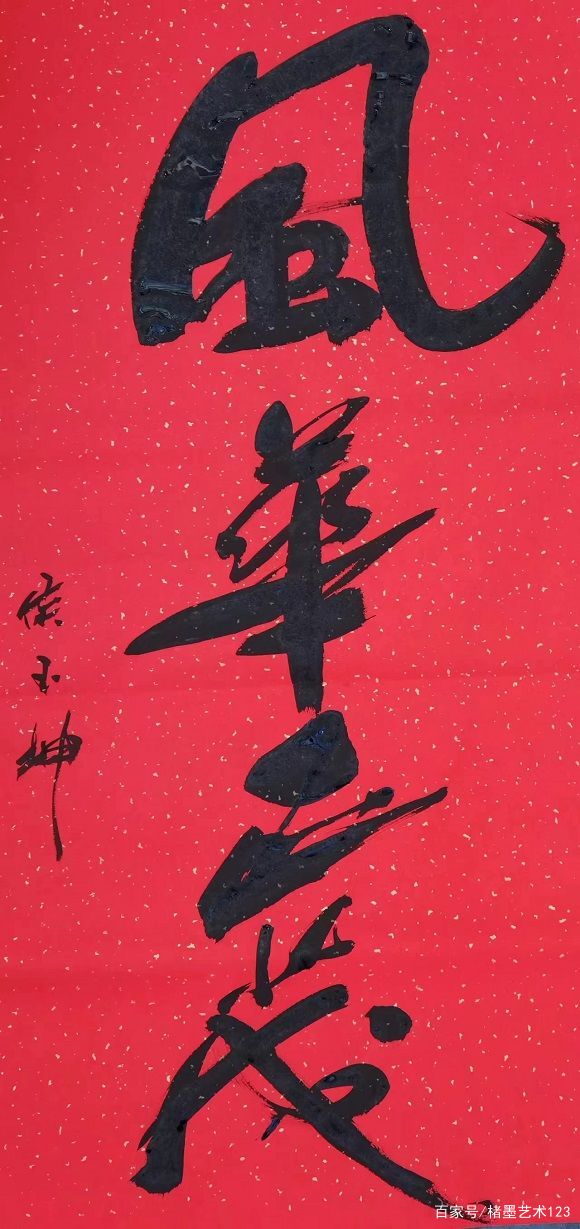 風華正茂
侯玉坤
百家号/楮墨艺术123